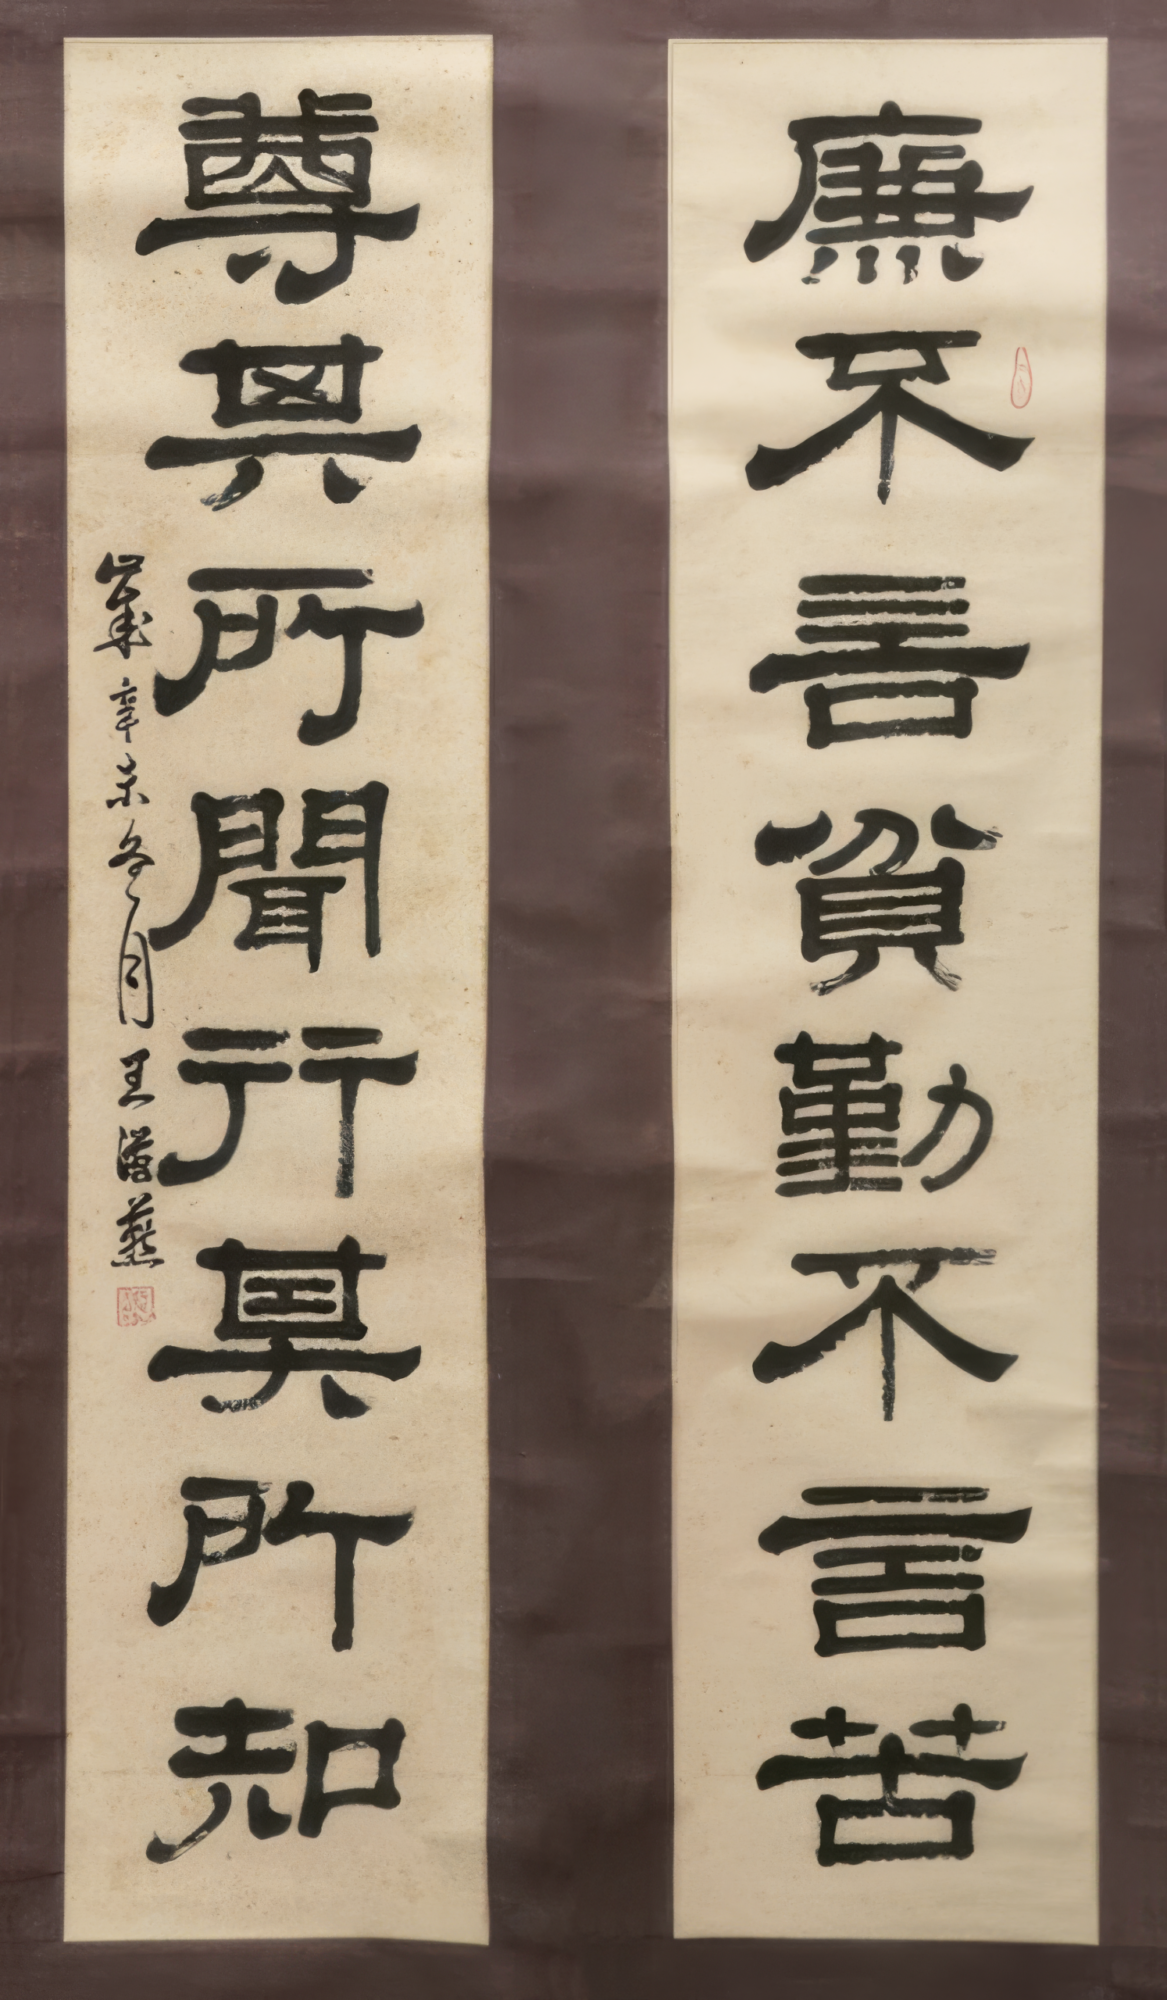 廉不言貧勤不言苦
尊其所聞行其所知
歲辛未冬月王蘧